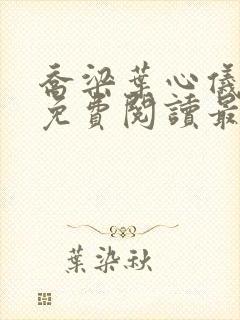 喬梁葉心儀
免費閱讀最
葉染秋